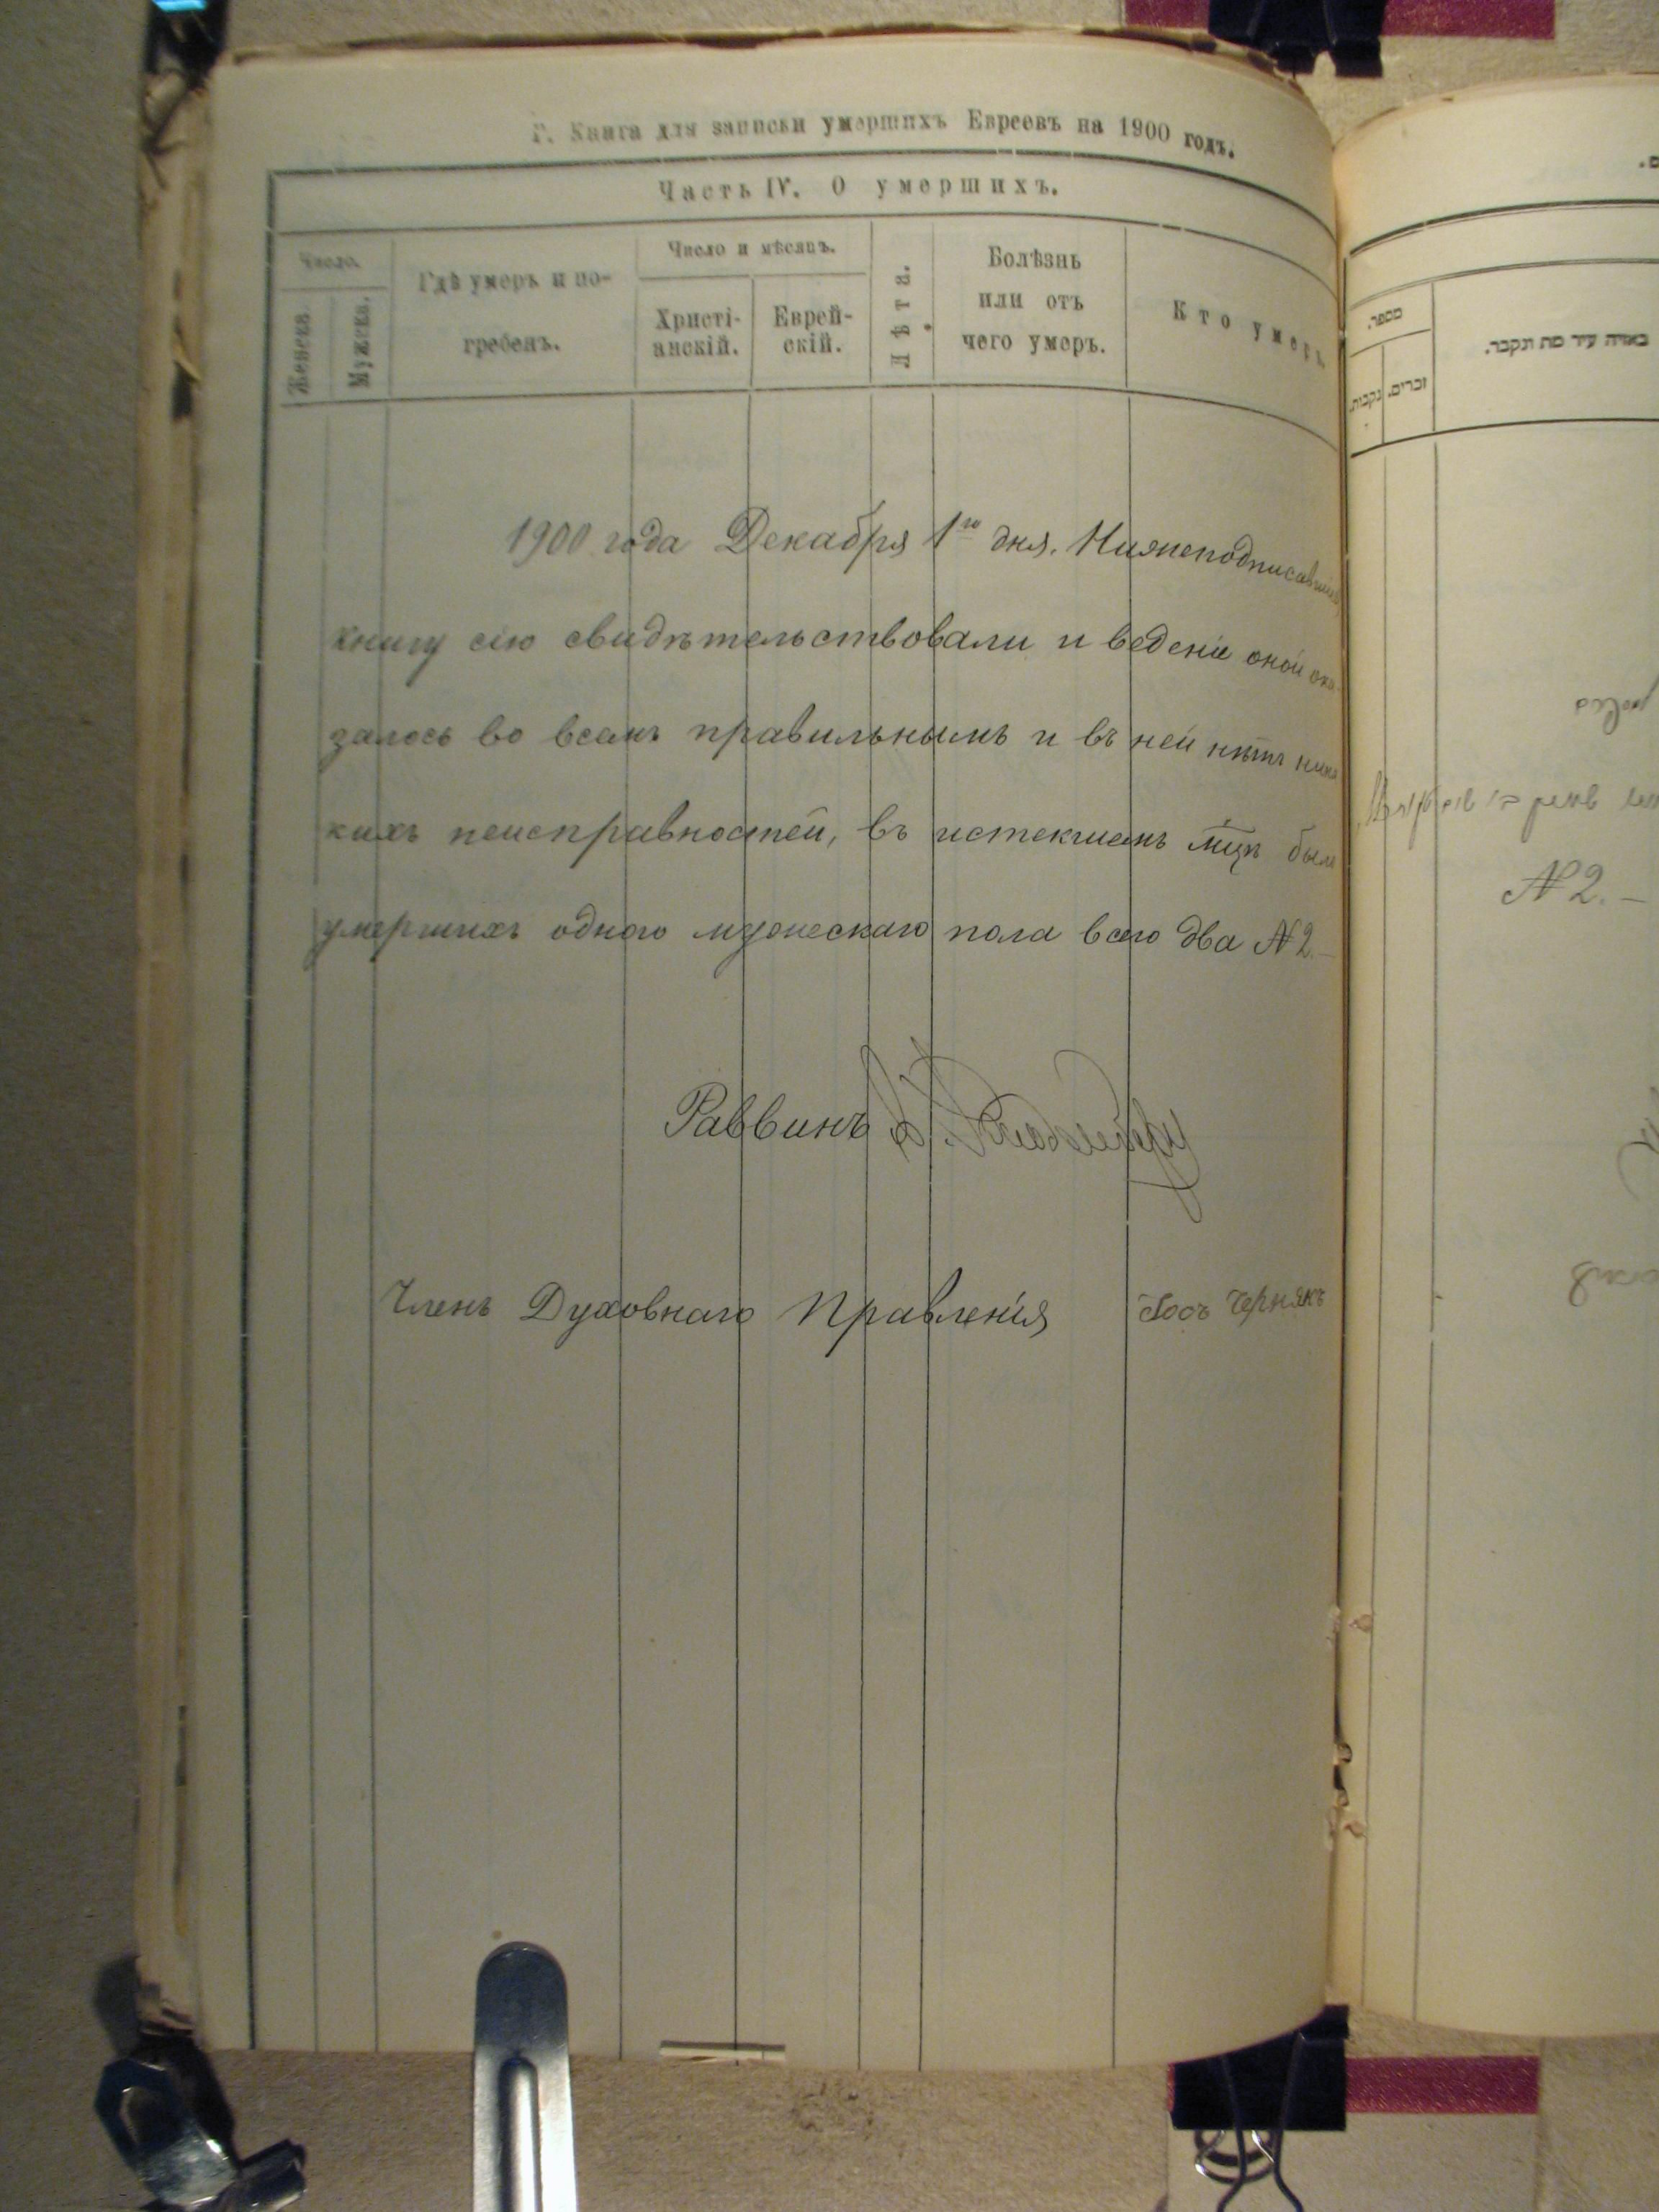 Г. Книга для записки умершихъ Евреевъ на 1900 годъ.
Часть IV. О умершихъ.
Число.
Женска.
Мужска.
Гдѣ умеръ и по-
гребенъ.
Число и мѣсяцъ.
Христі-
анскій.
Еврей-
скій.
Лѣта.
Болѣзнь
или отъ
чего умеръ.
Кто умеръ.
1900 года Декабря 1го дня. Нижеподписавшіеся
книгу сію свидѣтельствовали и веденіе оной ока-
залось во всемъ правильнымъ и въ ней нѣтъ ника
кихъ неисправностей, въ истекшемъ мцѣ было
умершихъ одного мужескаго пола всего два №2.—
Раввинъ
Членъ Духовнаго Правленія Іосъ Чернякъ
מספר.
נקבות.
זכרים.
באיזה עיר מת ונקבר.
№2.—